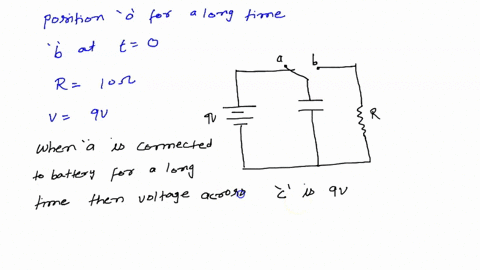 position 'o' for a long time
'b at t = 0
R = 10Ω
V = 9V
a b
9V
R
When 'a is connected
to battery for a long
time then voltage across 'c' is 9V